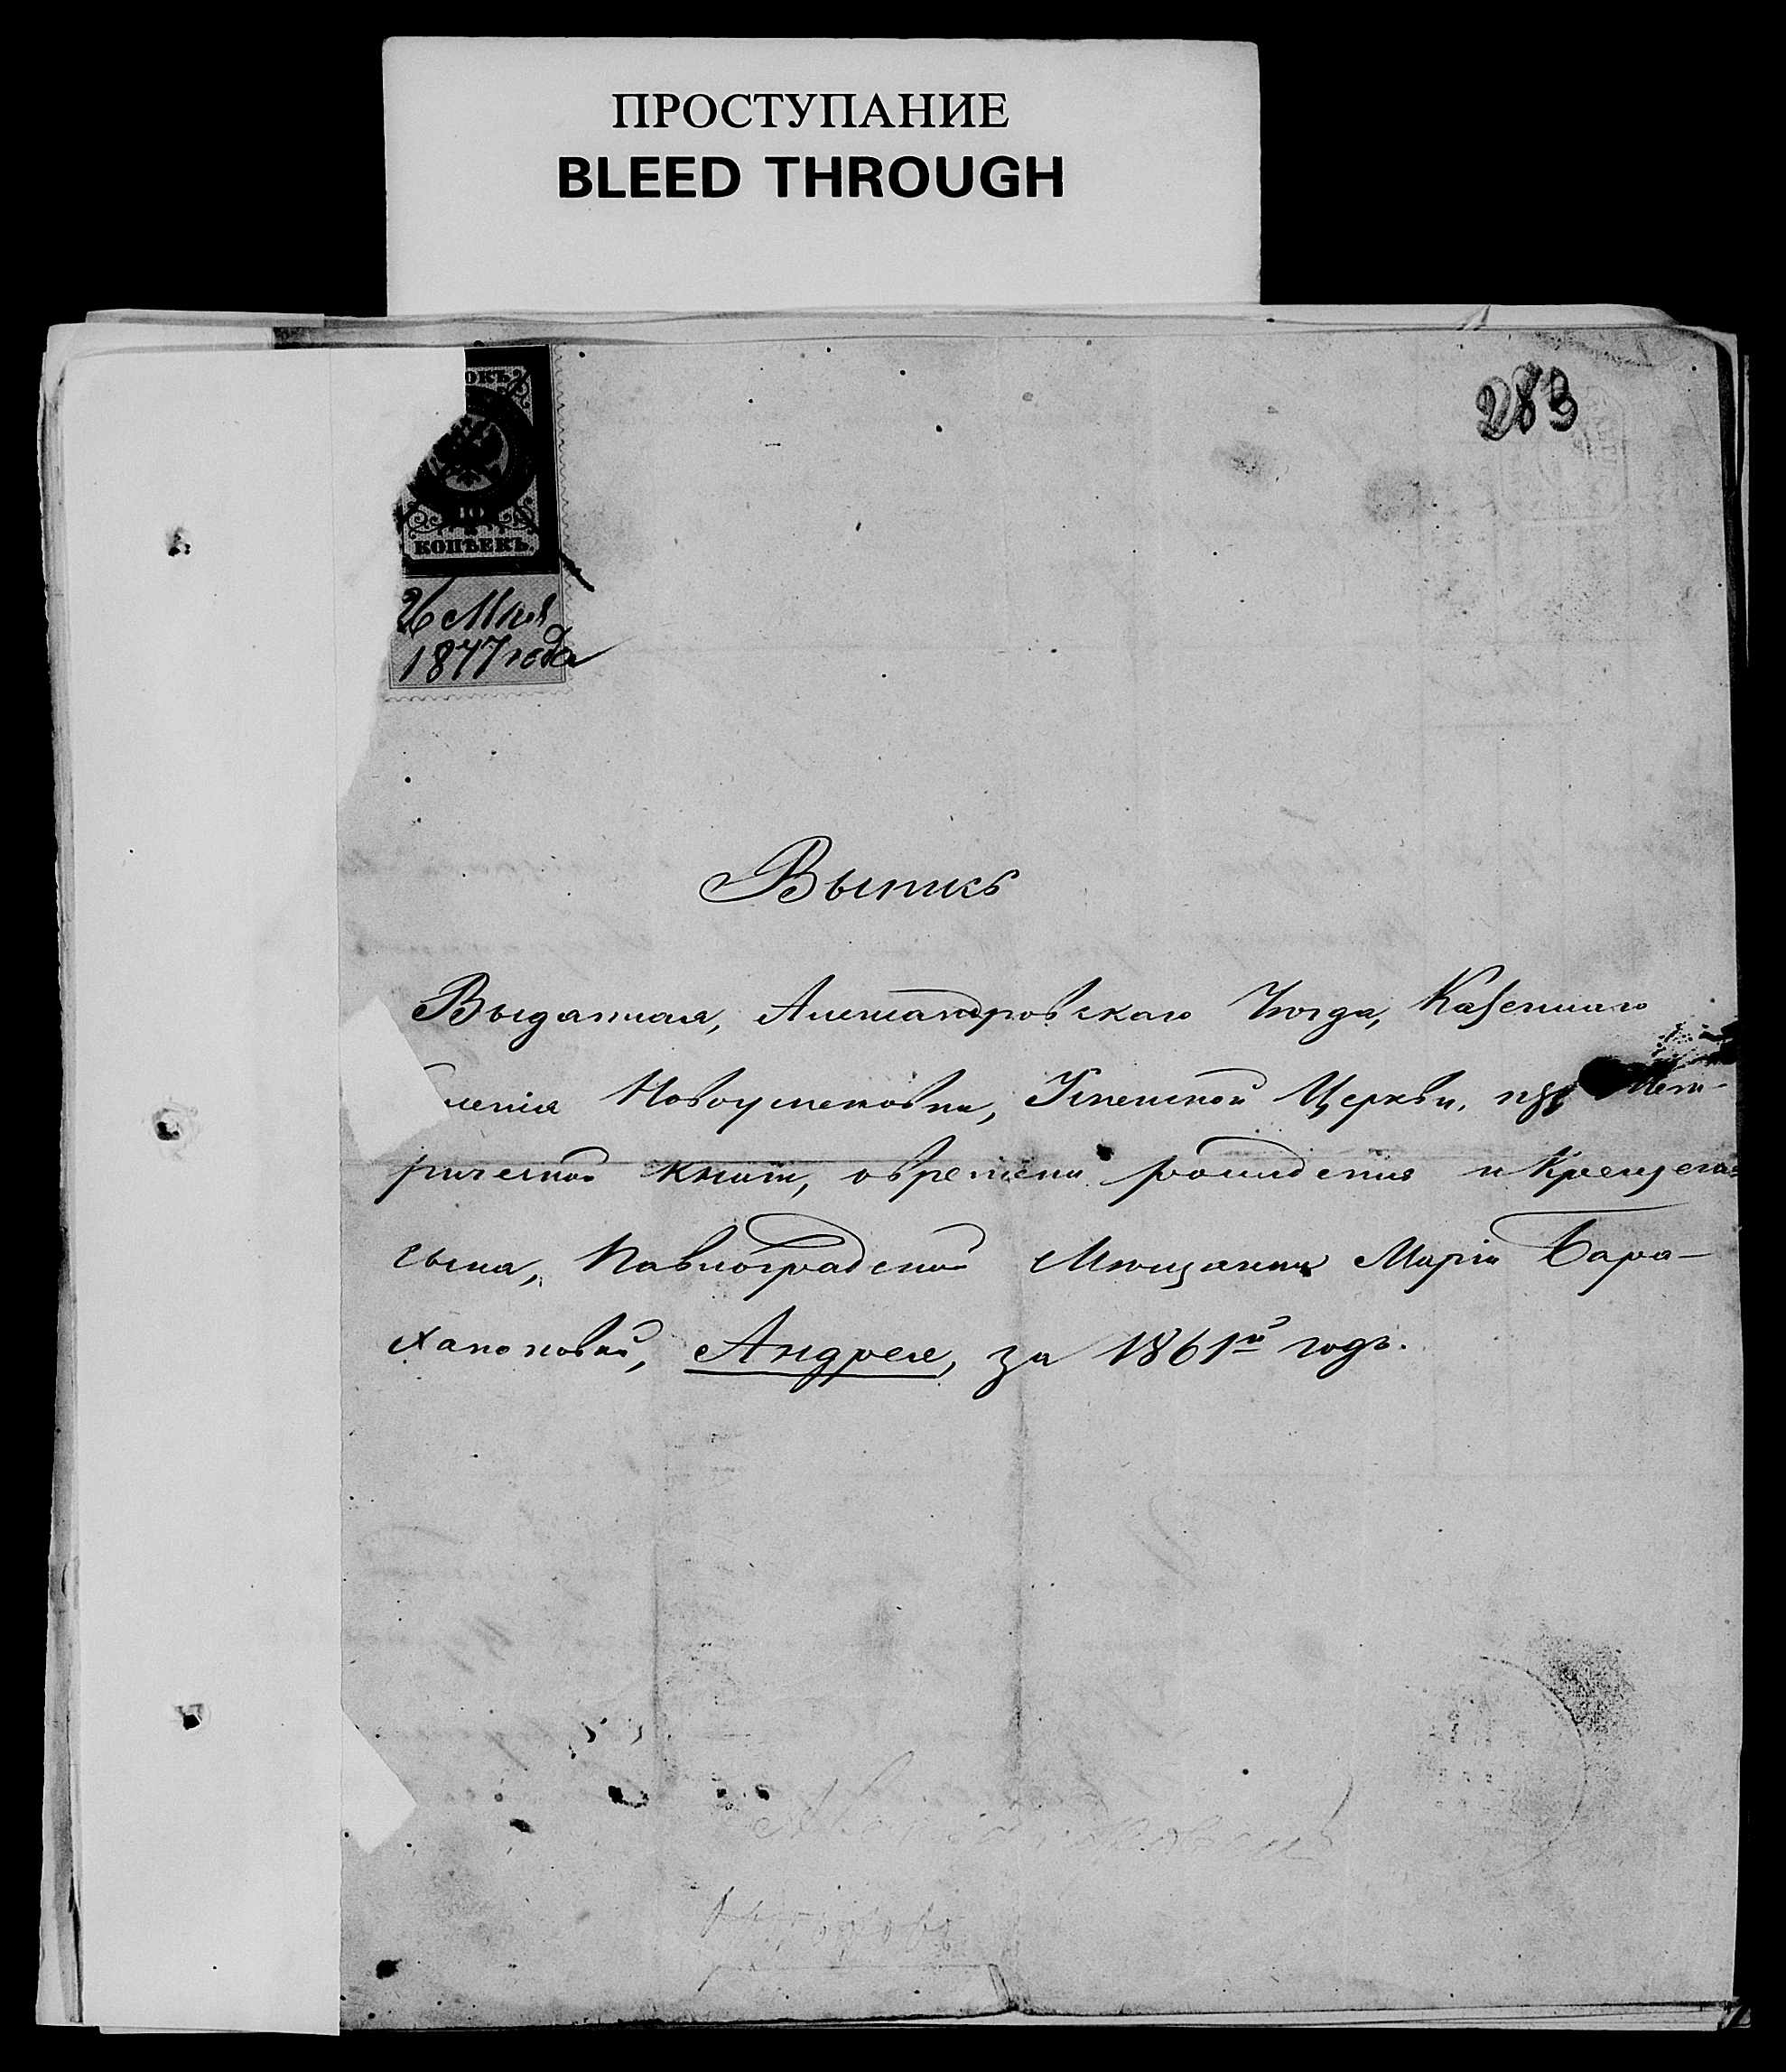 ПРОСТУПАНИЕ
BLEED THROUGH
283
10
КОПѢЕКЪ.
26 Мая
1877 года
Выпись
Выданная, Александровскаго Уѣзда, Казеннаго
селенія Новоуспеновки, Успенской Церкви, изъ Мет-
рической книги, о времени рожденія и Крещенія
сына, Павлоградской Мѣщанки Маріи Бара-
хановой, Андрея, за 1861й годъ.